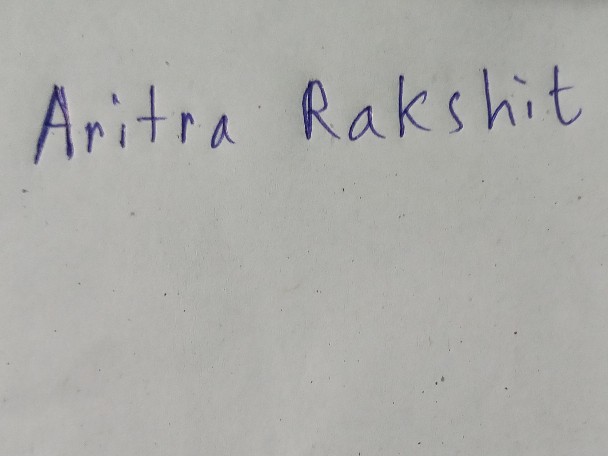 Aritra Rakshit